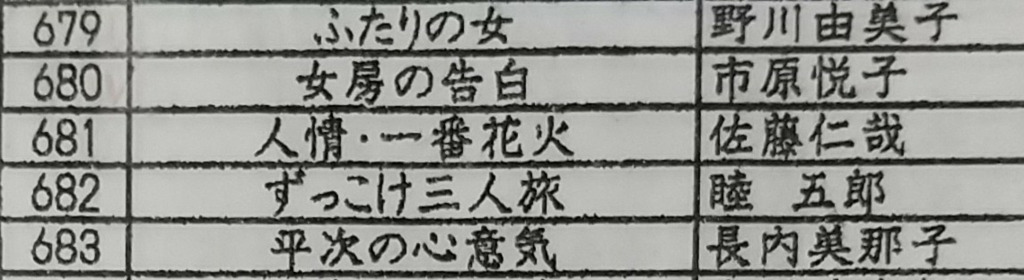 679 ふたりの女 野川由美子
680 女房の告白 市原悦子
681 人情・一番花火 佐藤仁哉
682 ずっこけ三人旅 睦 五郎
683 平次の心意気 長内美那子